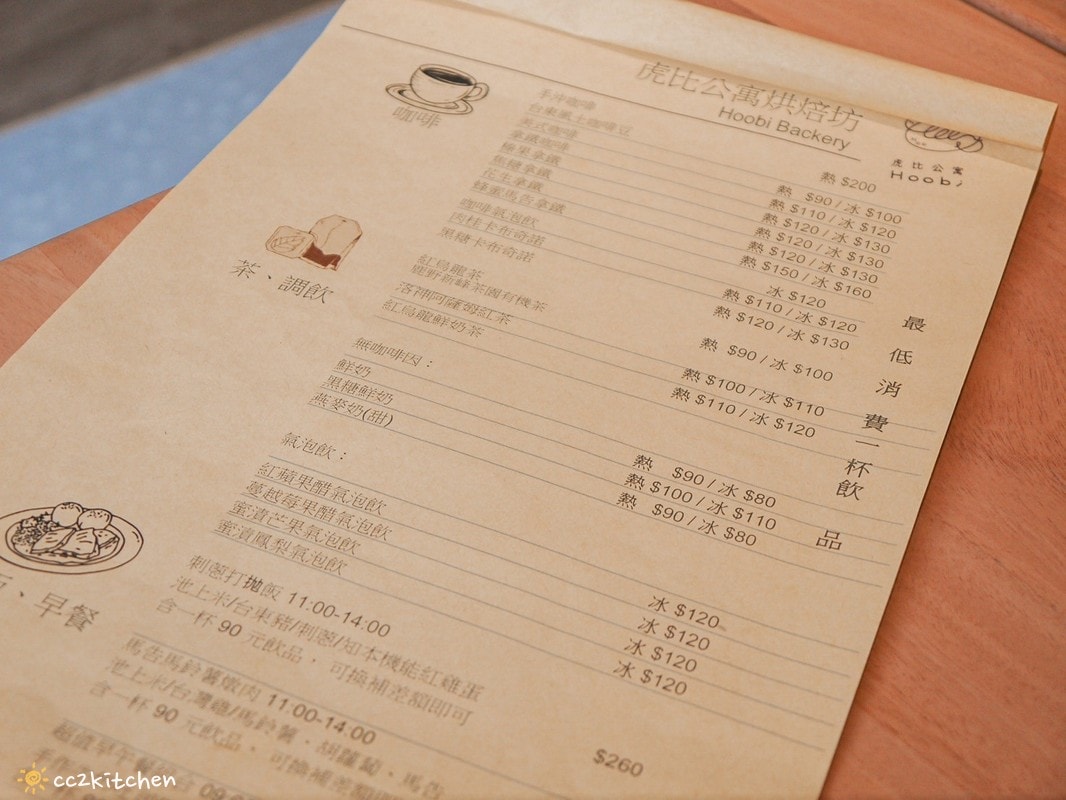 虎比公寓烘焙坊
Hoobi Backery
虎比公寓
Hoobi
咖啡
手沖咖啡
台東風土咖啡豆 熱 $200
美式咖啡 熱 $90 / 冰 $100
拿鐵咖啡 熱 $110 / 冰 $120
榛果拿鐵 熱 $120 / 冰 $130
焦糖拿鐵 熱 $120 / 冰 $130
花生拿鐵 熱 $120 / 冰 $130
蜂蜜馬告拿鐵 熱 $150 / 冰 $160
咖啡氣泡飲 冰 $120
肉桂卡布奇諾 熱 $110 / 冰 $120
黑糖卡布奇諾 熱 $120 / 冰 $130
茶、調飲
紅烏龍茶
鹿野新峰茶園有機茶 熱 $90 / 冰 $100
洛神阿薩姆紅茶 熱 $100 / 冰 $110
紅烏龍鮮奶茶 熱 $110 / 冰 $120
無咖啡因：
鮮奶 熱 $90 / 冰 $80
黑糖鮮奶 熱 $100 / 冰 $110
燕麥奶(甜) 熱 $90 / 冰 $80
氣泡飲：
紅蘋果醋氣泡飲 冰 $120
蔓越莓果醋氣泡飲 冰 $120
蜜漬芒果氣泡飲 冰 $120
蜜漬鳳梨氣泡飲 冰 $120
最低消費一杯飲品
、早餐
刺蔥打拋飯 11:00-14:00
池上米/台東豬/刺蔥/知本機能紅雞蛋
含一杯 90 元飲品， 可換補差額即可
$260
馬告馬鈴薯燉肉 11:00-14:00
池上米/台灣雞/馬鈴薯、胡蘿蔔、馬告
含一杯 90 元飲品， 可換補差額
超值早午餐 09:0
cc2kitchen